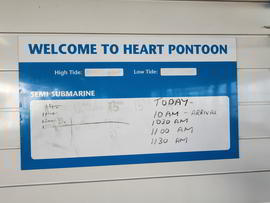 WELCOME TO HEART PONTOON
High Tide: Low Tide:
SEMI SUBMARINE
TODAY-
10 AM - ARRIVAL
1030 AM
11 00 AM
11 30 AM